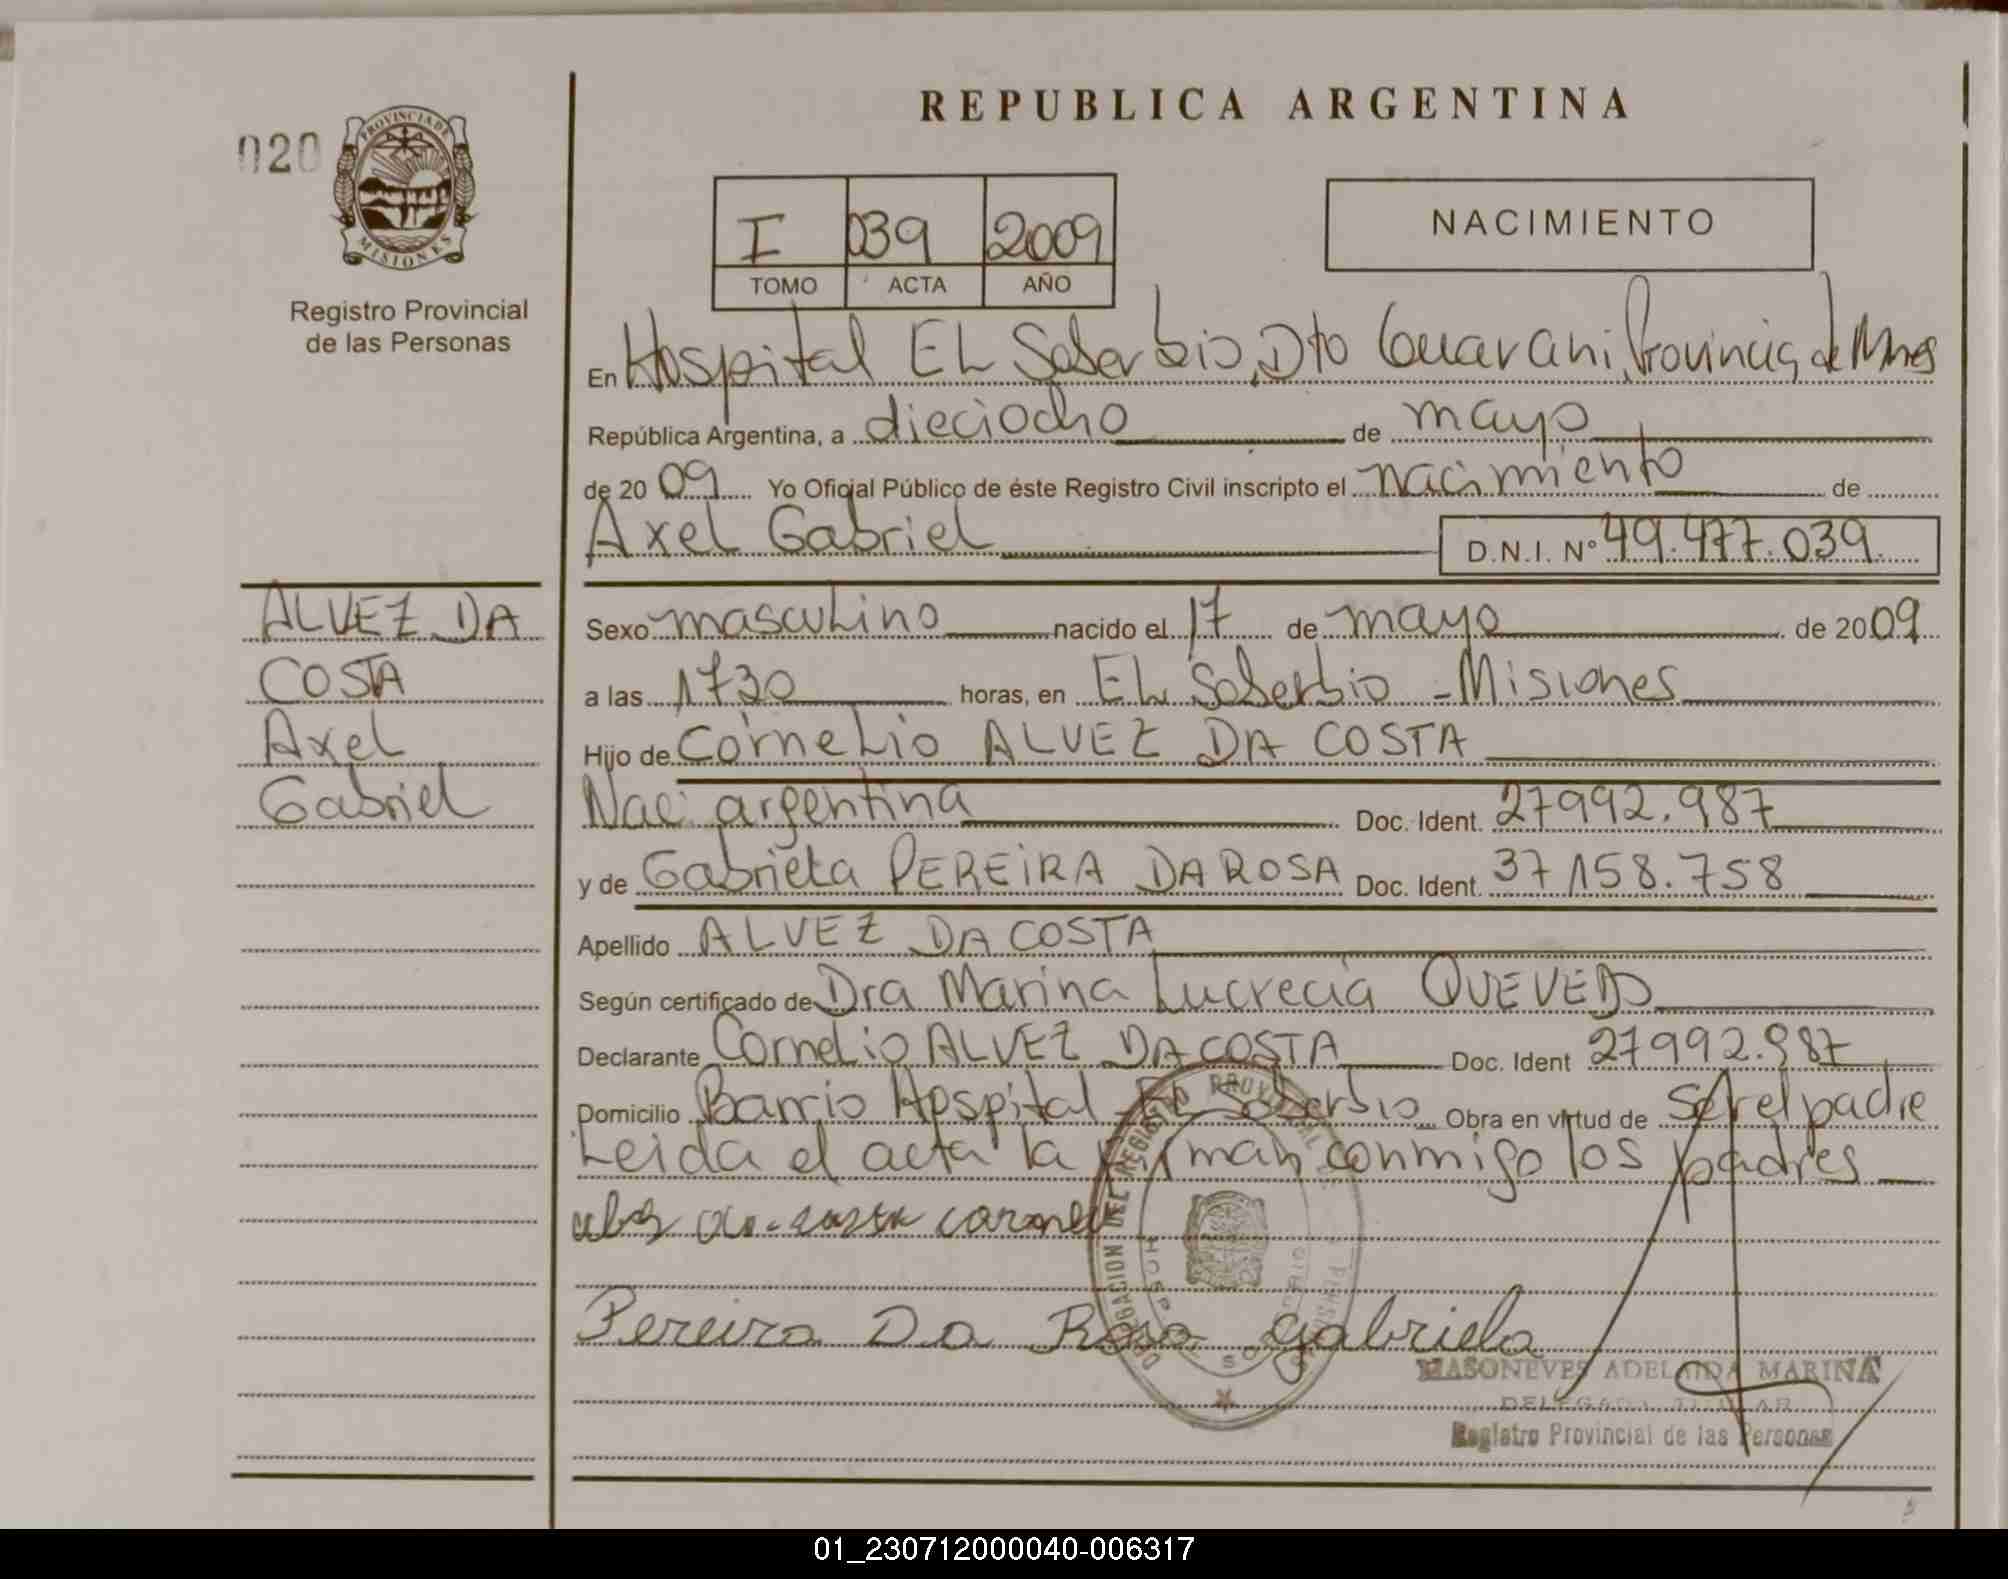 REPUBLICA ARGENTINA
020
PROVINCIA DE
MISIONES
Registro Provincial
de las Personas
I 039 2009
TOMO ACTA AÑO
NACIMIENTO
En Hospital EL Soberbio, Dto Guarani, Provincia de Mnes
República Argentina, a dieciocho de mayo
de 2009 Yo Oficial Público de éste Registro Civil inscripto el nacimiento de
Axel Gabriel D.N.I. Nº 49.477.039.
ALVEZ DA
COSTA
Axel
Gabriel
Sexo masculino nacido el 17 de mayo de 2009
a las 1730 horas, en EL Soberbio - Misiones
Hijo de Cornelio ALVEZ DA COSTA
Nac. argentina Doc. Ident. 27992.987
y de Gabriela PEREIRA DA ROSA Doc. Ident. 37158.758
Apellido ALVEZ DA COSTA
Según certificado de Dra Marina Lucrecia QUEVEDO
Declarante Cornelio ALVEZ DA COSTA Doc. Ident 27992.987
Domicilio Barrio Hospital EL Soberbio Obra en virtud de ser el padre
Leida el acta la firman conmigo los padres
Pereira Da Rosa Gabriela
MASONEVES ADELAIDA MARINA
DELEGADA TITULAR
Registro Provincial de las Personas
01_230712000040-006317